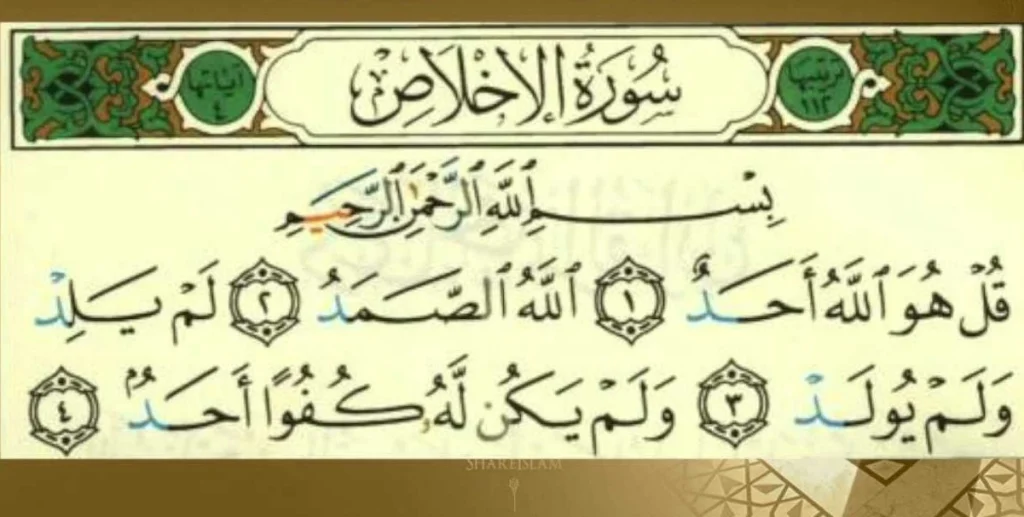 ترتيبها ١١٢
سُورَةُ الإِخْلَاصِ
آياتها ٤
بِسْمِ ٱللَّهِ ٱلرَّحْمَٰنِ ٱلرَّحِيمِ
قُلْ هُوَ ٱللَّهُ أَحَدٌ ١ ٱللَّهُ ٱلصَّمَدُ ٢ لَمْ يَلِدْ
وَلَمْ يُولَدْ ٣ وَلَمْ يَكُن لَّهُۥ كُفُوًا أَحَدٌۢ ٤
SHAREISLAM